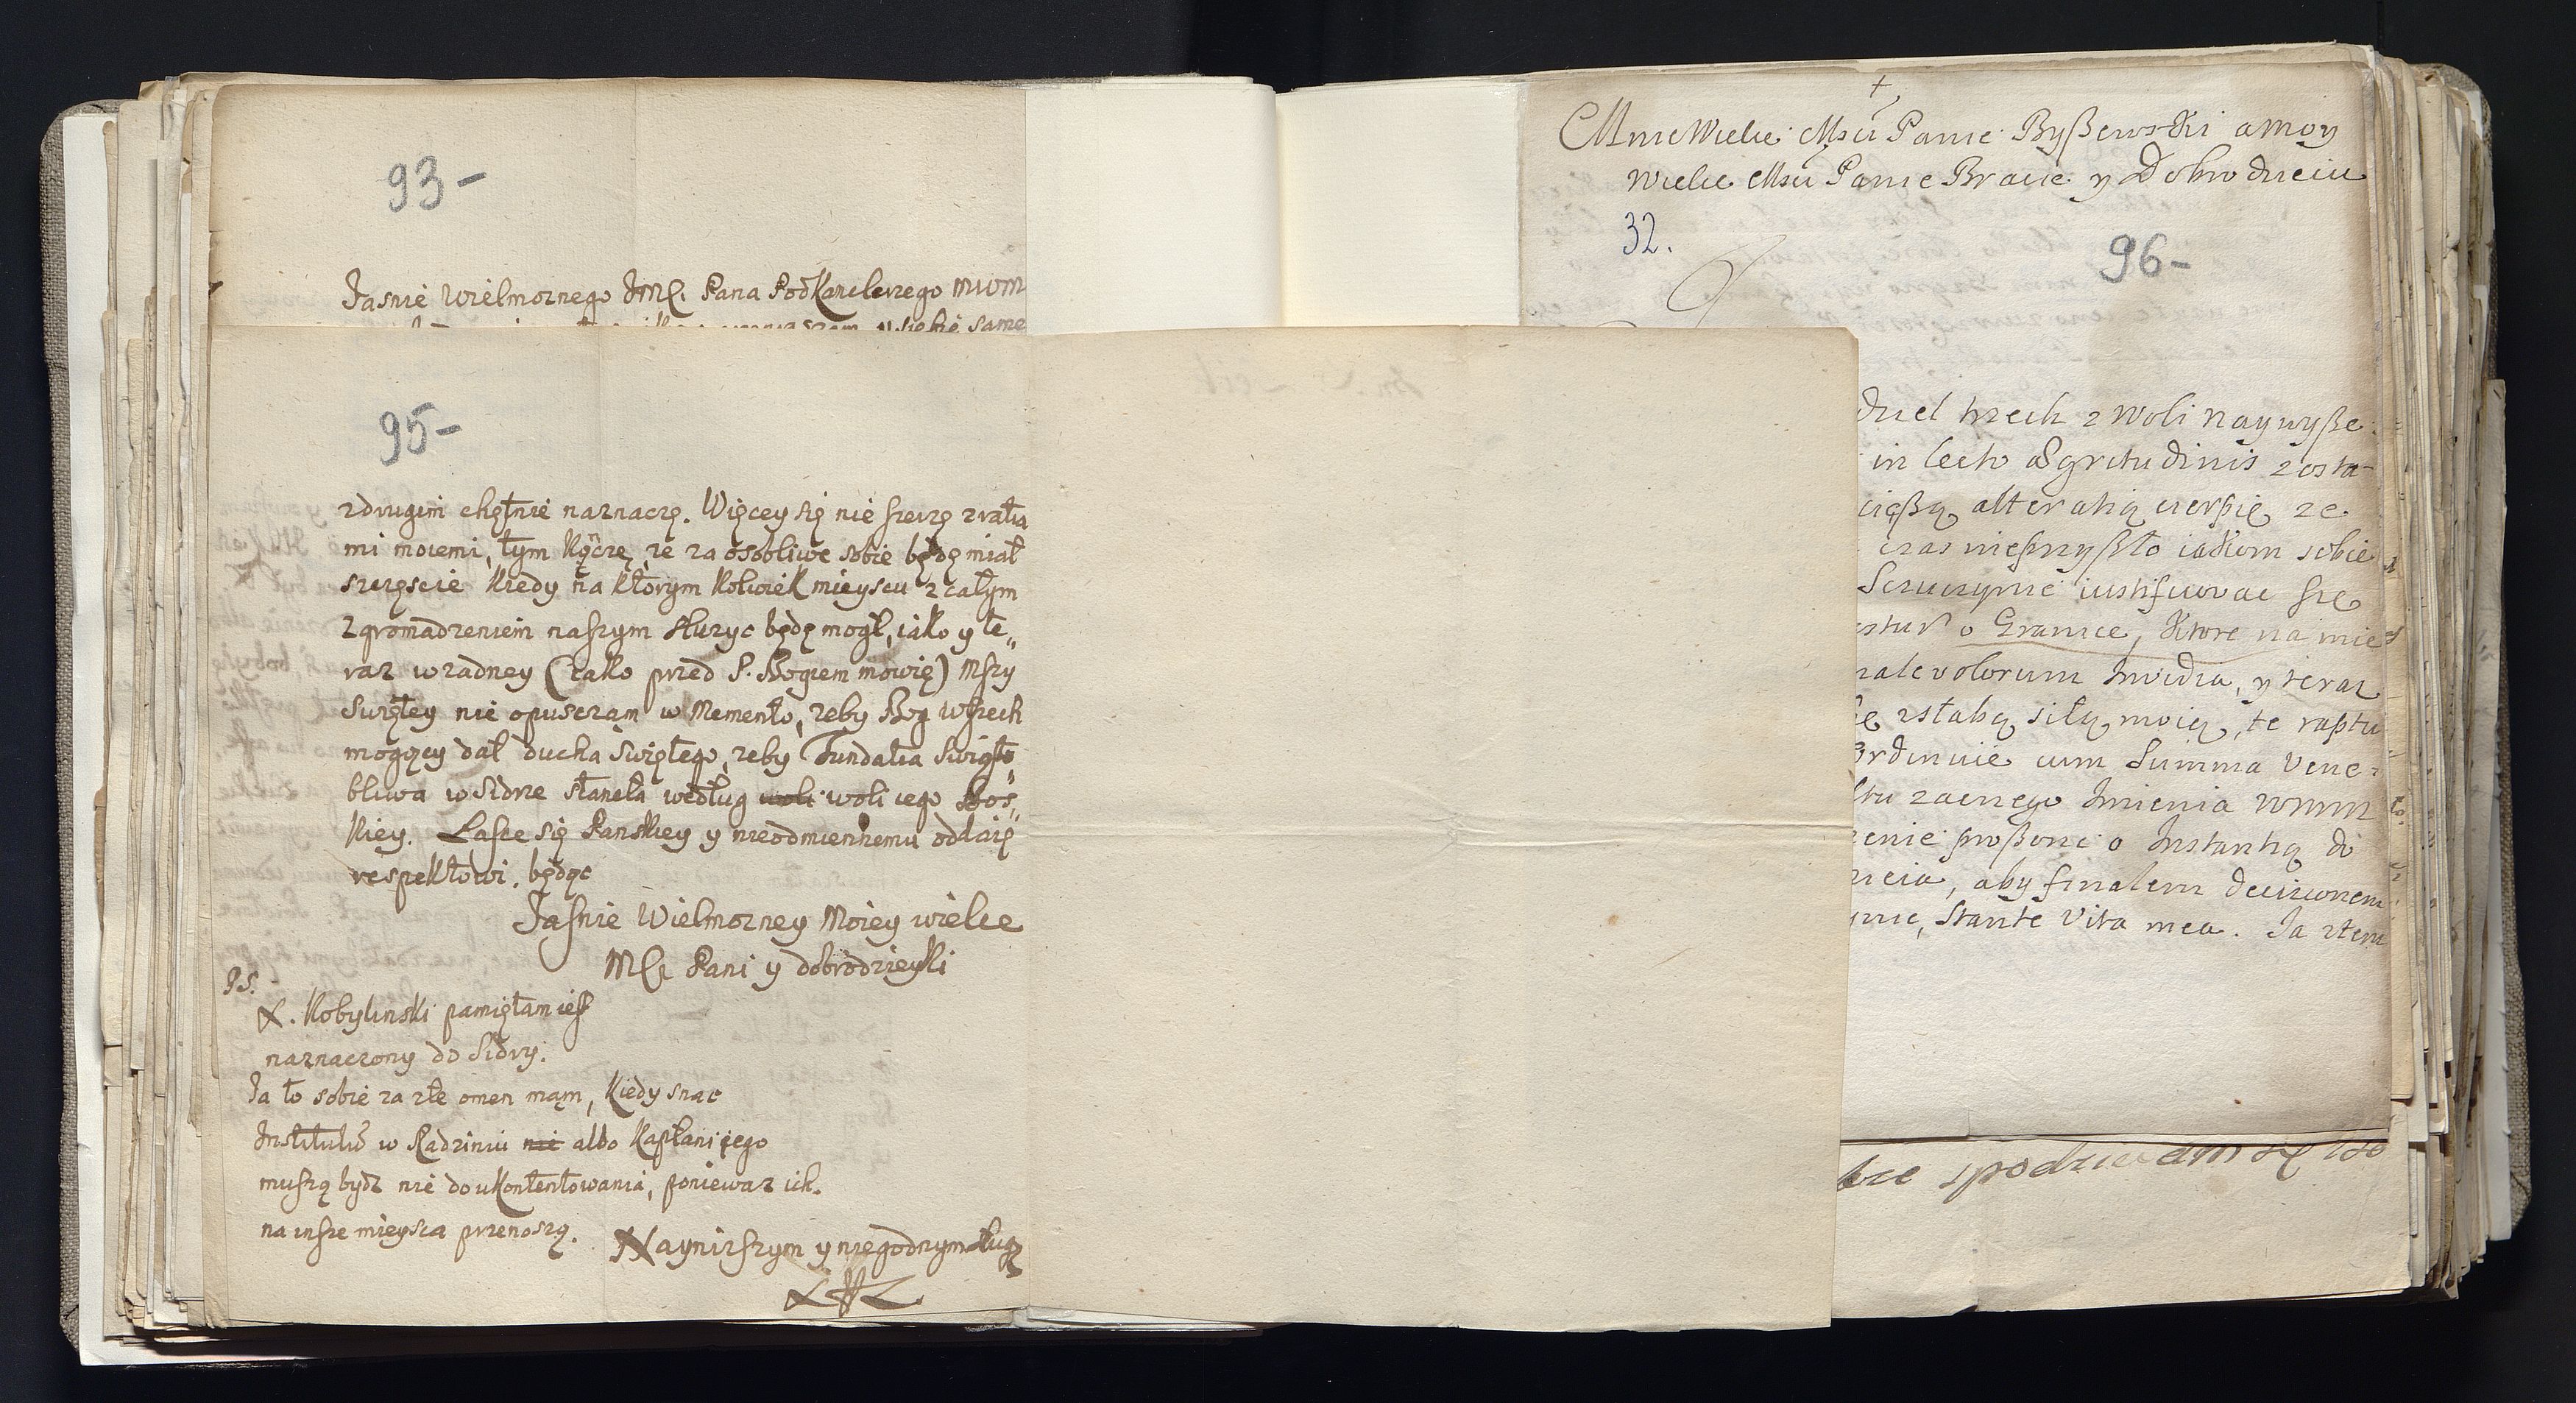 93-
Jasnie Wielmoznego JMCi Pana Podkanclerzego MWM
95-
z drugiemi chętnie naznaczę. Więcey się nie szerzę z ratia
mi moiemi, tym kączę, ze za osobliwe sobie będę miał
szczęscie kiedy na ktorym kolwiek mieyscu z całym
Zgromadzeniem naszym słuzyc będę mogł, iako y te„
raz w zadney (iako przed P. Bogiem mowię) Mszy
Swiętey nie opuszczam w Memento, zeby Bog wszech
mogący dał ducha swiętego, zeby Fundatia swięto„
bliwa w Sidrze staneła według woli woli iego Bos„
kiey. Łasce się Panskiey y nieodmiennemu oddaię
respektowi. będąc
Jasnie Wielmozney Moiey wielce
MCi Pani y dobrodzieyki
PS.
X. Kobylinski pamiętam iest
naznaczony do Sidry.
Ja to sobie za złe omen mąm, kiedy snac
Institutů w Radziniu nie albo kapłani iego
muszą bydz nie do ukontentowania, poniewaz ich
na insze mieysca przenoszą.
Naynizszym y niegodnym sługą
+
Mnie Wielce Msci Panie Byßewski a moy
Wielce Msci Panie Bracie y Dobrodzieiu
32.
96-
dziel trzech z Woli Naywyße
in lecto Ægritudinis zosta-
cięßą alteratią cierpię ze
czas nieprzyßło iakom sobie
Szczuczynie iustificovac się
o Granice, ktore na mie
malevolorum Invidia, y teraz
zsłabą siłą moią, te raptu
Ordinuię cum Summa Vene-
zacnego Imienia WMM
proßone o Instantią do
dzieia, aby finalem decizionem
Stante Vita mea. Ja ztem
spodziewam się